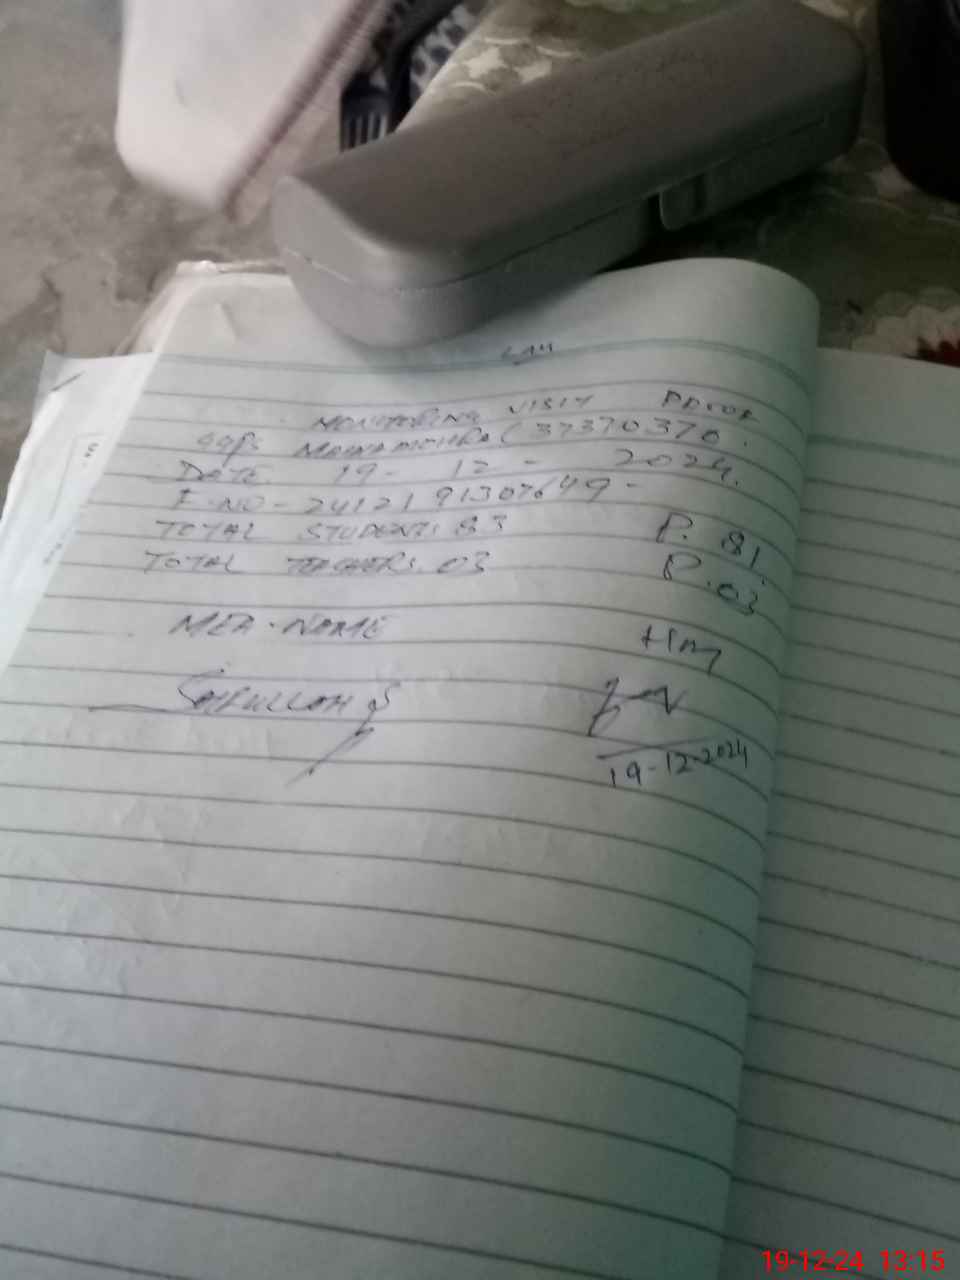 MONITORING VISIT PROOF
GGPS MAIRA MOHRA (37370370.
DATE. 19- 12 - 2024.
E.NO - 2412191307649-
TOTAL STUDENTS 83 P. 81
TOTAL TEACHERS. 03 P. 03
MEA. NAME
SAIFULLAH
19-12-2024
19-12-24 13:15